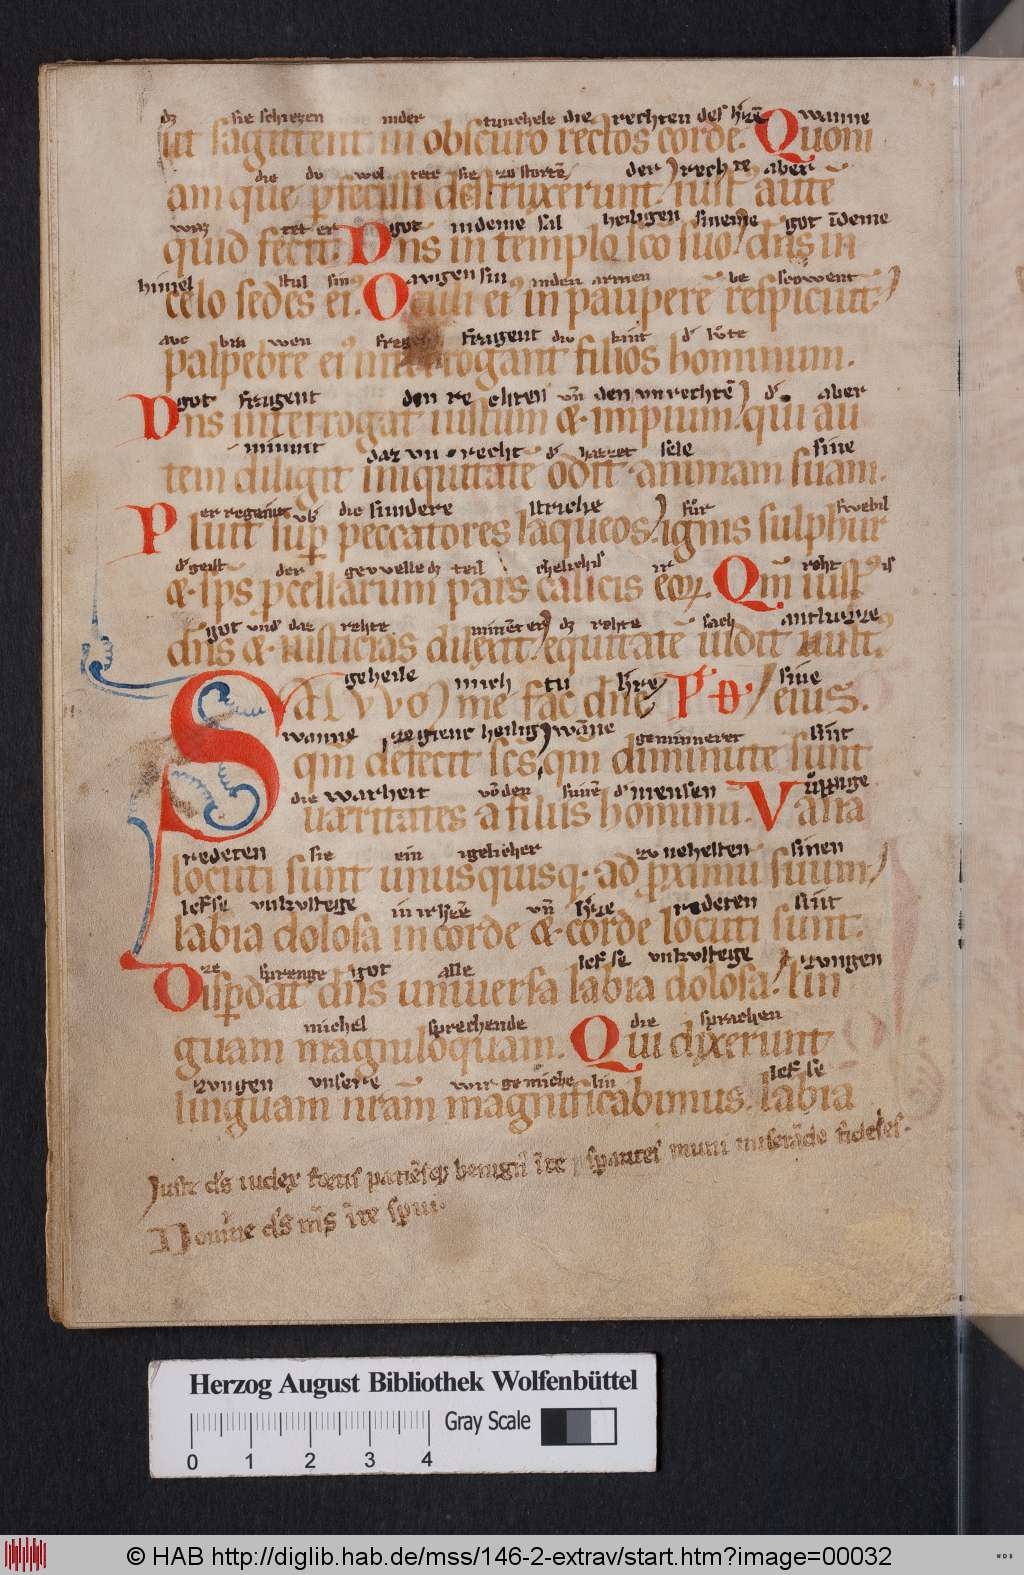 dz sie schiezen inder tunchele die rechten des h'zē wanne
ut sagittent in obscuro rectos corde. Quoni
die du wol tete sie zu stortē der rech te aber
am que pfecisti destruxerunt. iust' autē
waz tet er got indeme sal heiligen sineme got īdeme
quid fecit. Dn̄s in templo sc̄o suo. dn̄s in
himel stul sin' avigen sin inden armen be scowent
celo sedes ei'. Oculi ei' in pauperē respiciūt
avc bra wen fragent diu kint d' lute
palpebre ei' interrogant filios hominum.
got fragent den re chten vn̄ den unrechtē d' aber
Dn̄s interrogat iustum & impium. qui au
minnit daz un recht d' hazzet sele sine
tem diligit iniquitatē odit animam suam.
er regenit vb' die sundere striche fur swebil
Pluit sup peccatores laqueos. ignis sulphur
d' geist der gewelle dz teil chelichis ir reht is
& sp̄s pcellarum pars calicis eoꝝ. Qm̄ iust'
got vnd daz rehte minnet er dz rehte sach antluzze
dn̄s & iusticias dilexit. equitatē uidit uult'
geheile mich tu h're sine
SALVVM me fac dn̄e eius.
wanne heilig wāne geminneret sint
qm̄ defecit sc̄s. qm̄ diminute sunt
die warheit vō den sunē d' mensen uppige
ueritates a filiis hominū. Vana
redeten sie ein igelicher zu nehesten sinen
locuti sunt unusquisq; ad pximū suum
lefse unkustege in h'zē vn̄ h'ze redeten sint
labia dolosa in corde & corde locuti sunt.
ze sprenge got alle lef se unkustege zungen
Disp̄dat dn̄s uniuersa labia dolosa. lin
michel sprechende die sprachen
guam magniloquam. Qui dixerunt
zungen unsere wir gemiche lin lef se
linguam nr̄am magnificabimus. labia
Domine ds̄
Herzog August Bibliothek Wolfenbüttel
Gray Scale
0 1 2 3 4
© HAB http://diglib.hab.de/mss/146-2-extrav/start.htm?image=00032
WDB